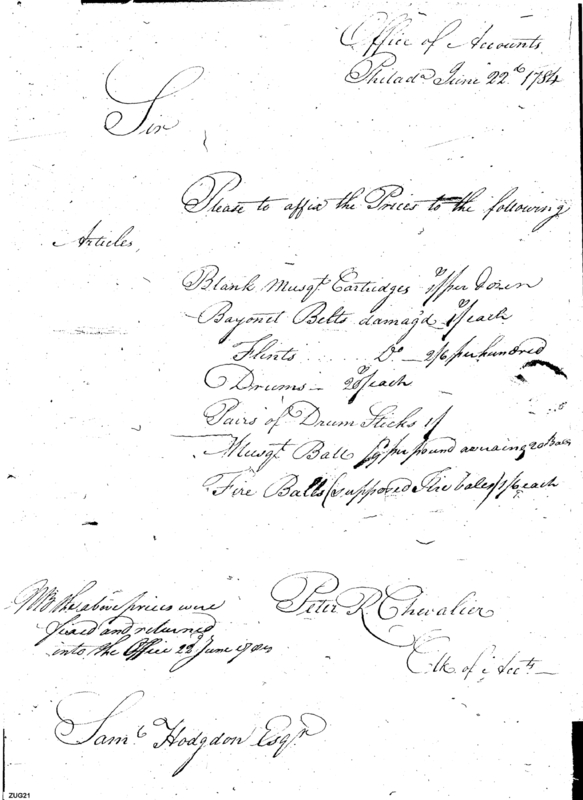 Office of Accounts
Philada June 22d 1784
Sir
Please to affix the Prices to the following
Articles,
Blank Musqt Cartridges 1/ per Dozen
Bayonet Belts damag'd 1/ each
Flints ..... Do — 2/6 per hundred
Drums — 20/ each
Pairs of Drum Sticks 1/
Musqt Ball per pound 20 Balls
Fire Balls (supposed Fire bales) 1/6 each
NB the above prices were
fixed and returned
into the Office 22d June 1784
Peter R Chevalier
Clk of Accts
Saml Hodgdon Esqr
ZUG21